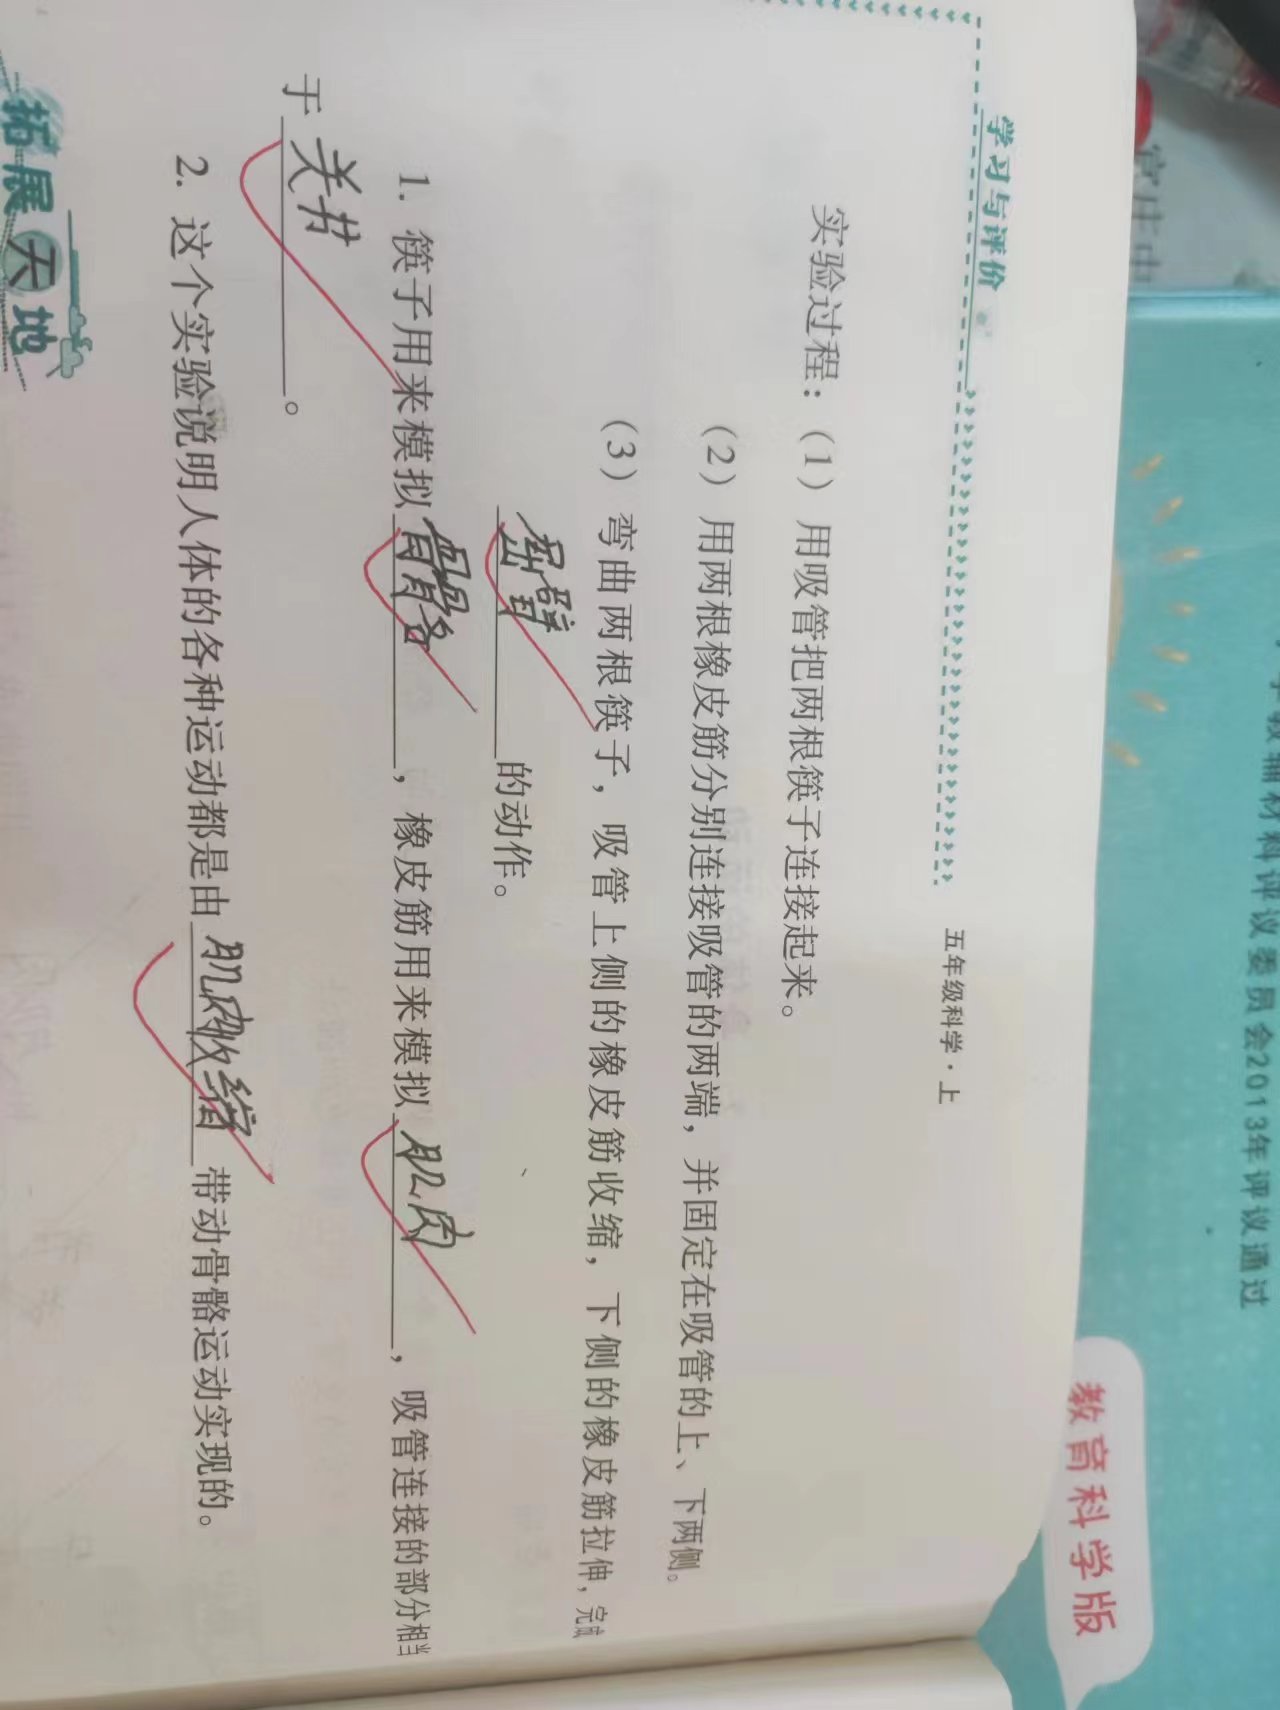 学习与评价
五年级科学·上
实验过程：（1）用吸管把两根筷子连接起来。
（2）用两根橡皮筋分别连接吸管的两端，并固定在吸管的上、下两侧。
（3）弯曲两根筷子，吸管上侧的橡皮筋收缩，下侧的橡皮筋拉伸，完成
屈臂的动作。
1. 筷子用来模拟骨骼，橡皮筋用来模拟肌肉，吸管连接的部分相当
于关节。
2. 这个实验说明人体的各种运动都是由肌肉收缩带动骨骼运动实现的。
拓展天地
教辅材料评议委员会2013年评议通过
教育科学版